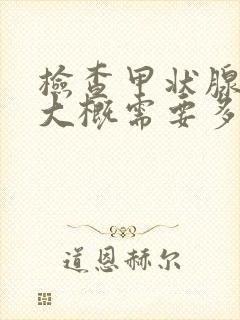 檢查甲状腺
大概需要多
道恩赫尔